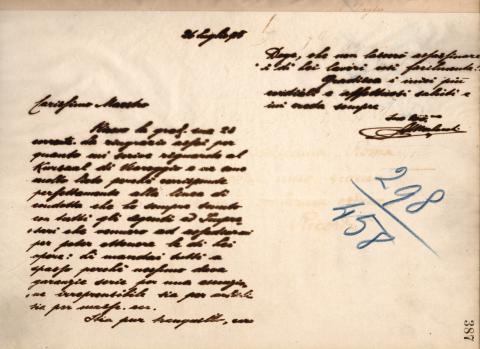 26 Luglio, 95
Carissimo Maestro
Ricevo la grad. sua 20
corrente. La ringrazio assai per
quanto mi scrive riguardo al
Kursaal di Viareggio e ne sono
molto lieto perchè corrisponde
perfettamente alla linea di
condotta che ho sempre tenuto
con tutti gli agenti ed Impre-
sari che vennero ad
per poter ottenere le di lei
opere: li mandai tutti a
spasso perchè nessuno dava
garanzie serie per una esecuzio-
ne irreprensibile sia per artisti
sia per masse. ecc.
Stia pur tranquillo, caro
Doge, che non lascerò assassinare
i di lei lavori così facilmente!
Gradisca i miei più
cordiali e affettuosi saluti e
mi creda sempre
suo
298
458
387